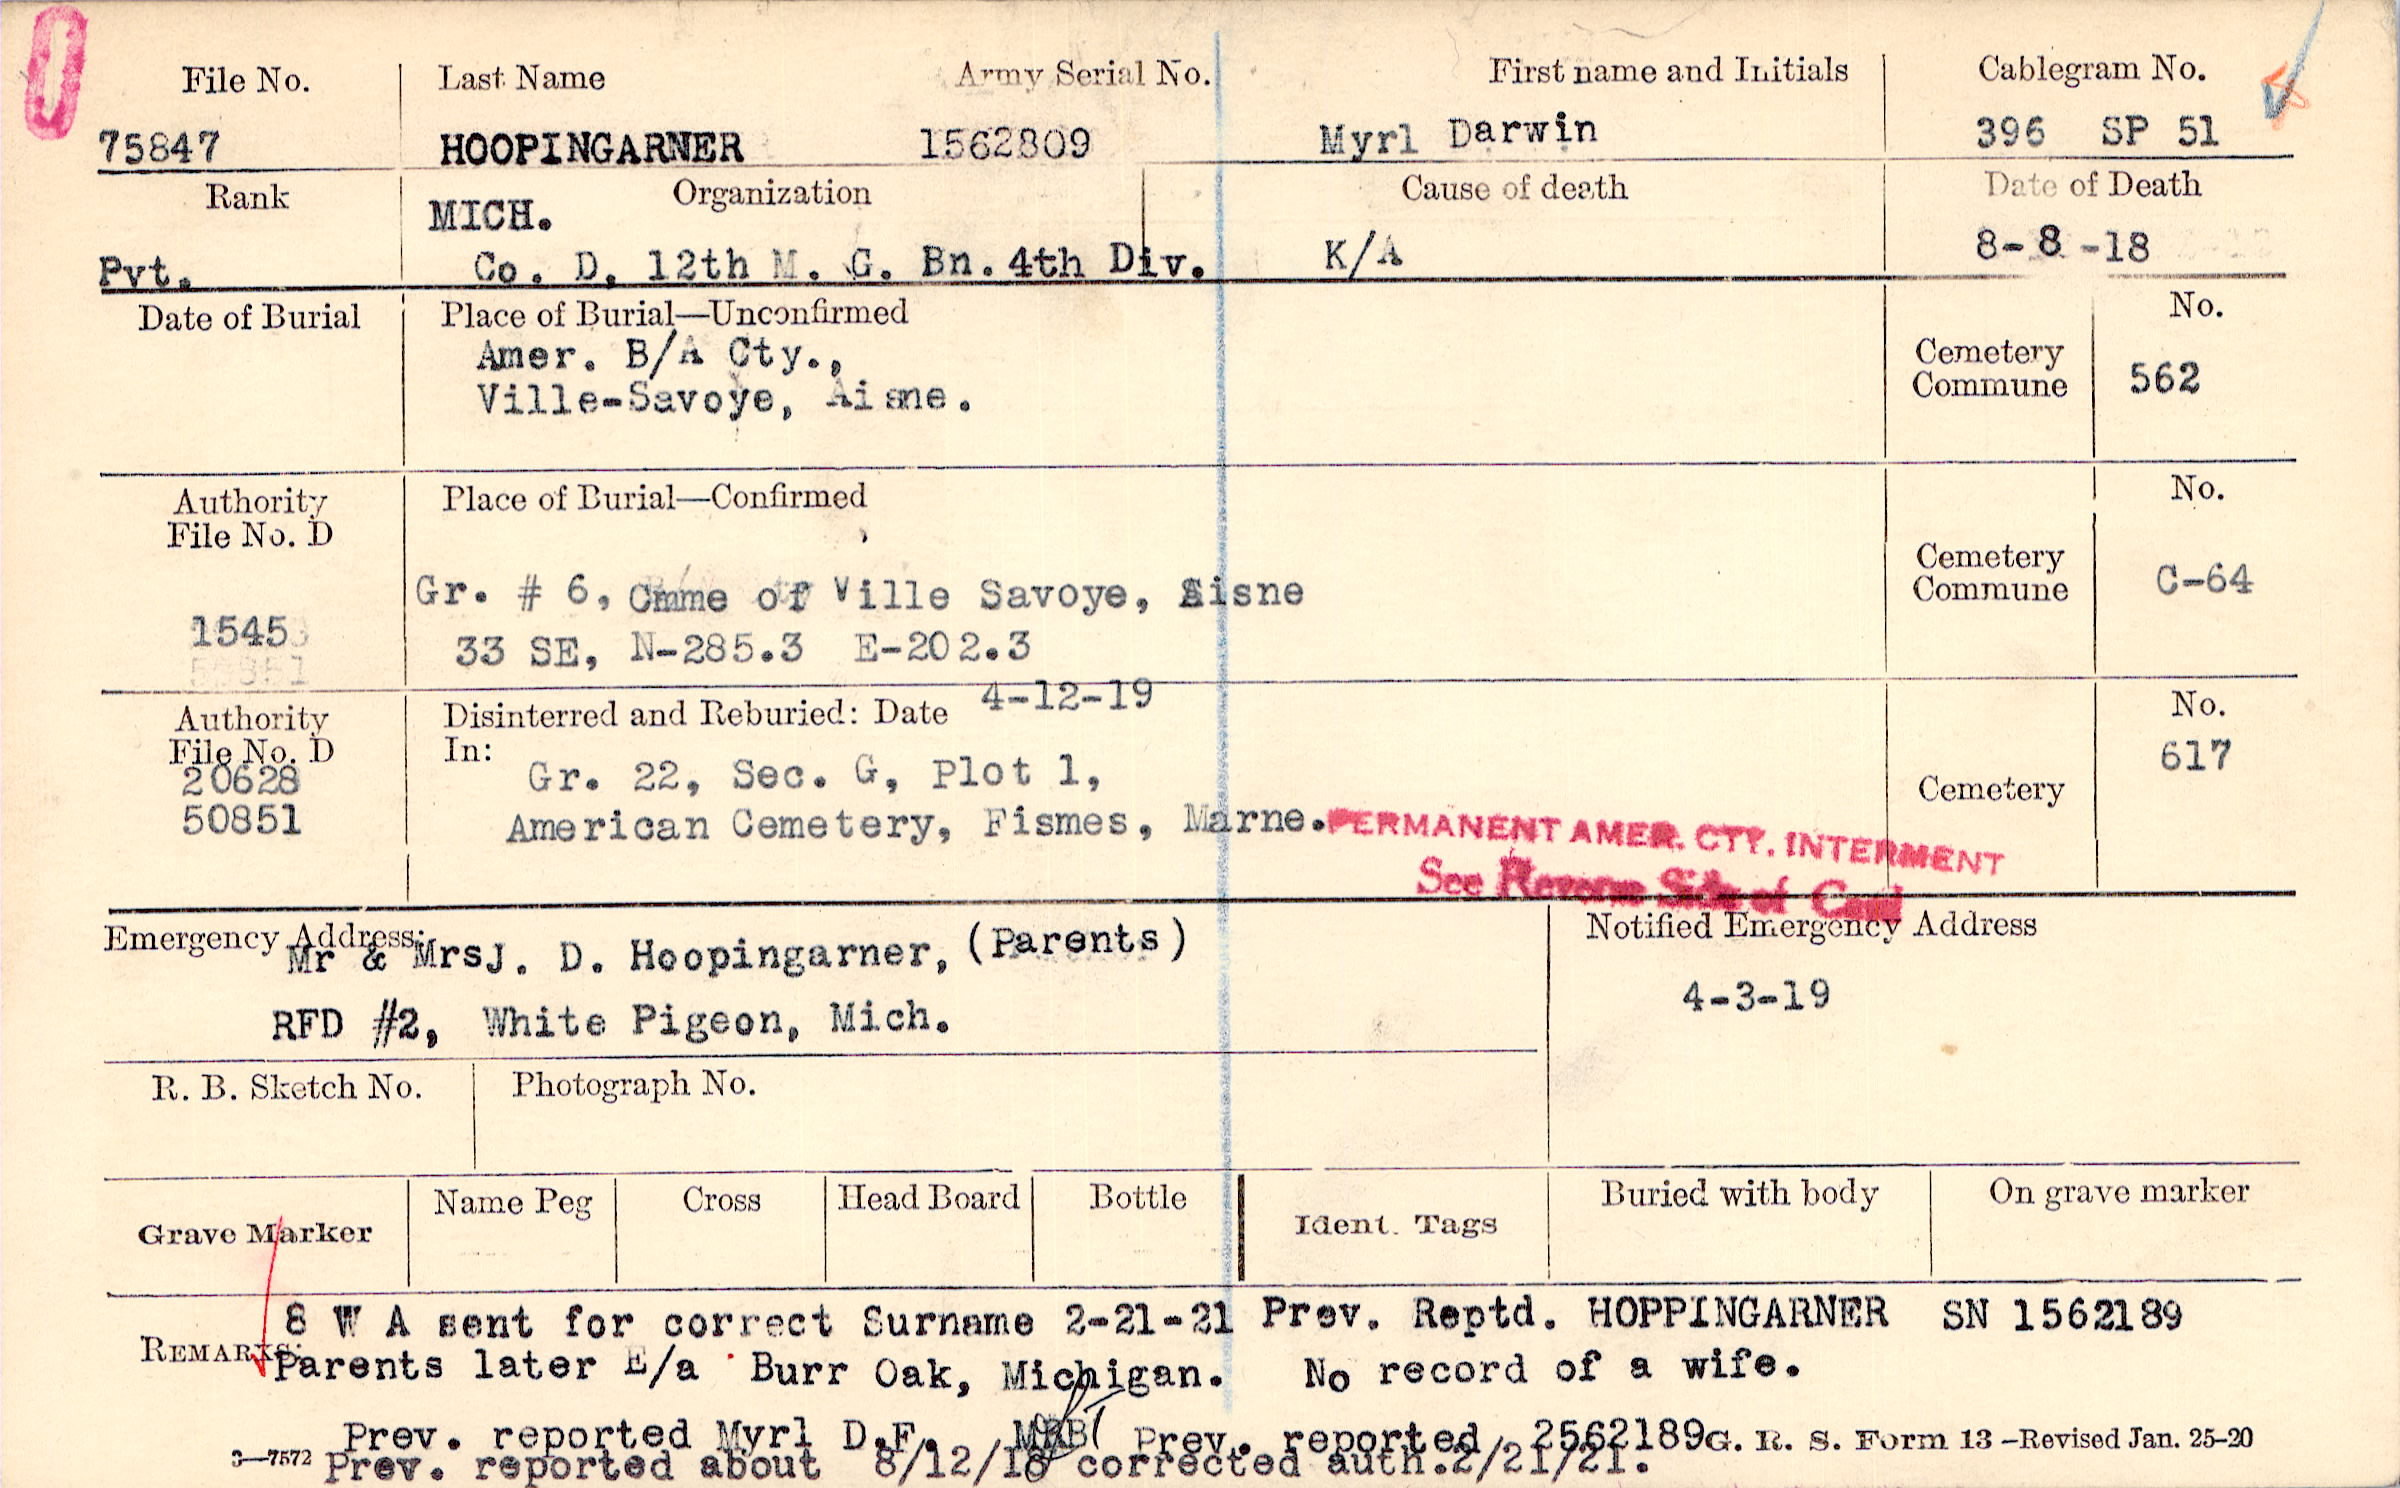 File No. Last Name Army Serial No. First name and Initials Cablegram No.
75847 HOOPINGARNER 1562809 Myrl Darwin 396 SP 51
Rank Organization Cause of death Date of Death
MICH.
Pvt. Co. D, 12th M. G. Bn. 4th Div. K/A 8-8-18
Date of Burial Place of Burial—Unconfirmed No.
Amer. B/A Cty.,
Ville-Savoye, Aisne.
Cemetery
Commune 562
Authority
File No. D Place of Burial—Confirmed No.
Gr. # 6, Cmme of Ville Savoye, Aisne
Cemetery
Commune C-64
1545
33 SE, N-285.3 E-202.3
50851
Authority
File No. D Disinterred and Reburied: Date 4-12-19 No.
In:
20628 Gr. 22, Sec. G, Plot 1, 617
50851 American Cemetery, Fismes, Marne. Cemetery
PERMANENT AMER. CTY. INTERMENT
See Reverse Side of Card
Emergency Address: Notified Emergency Address
Mr & Mrs J. D. Hoopingarner, (Parents)
RFD #2, White Pigeon, Mich. 4-3-19
R. B. Sketch No. Photograph No.
Grave Marker Name Peg Cross Head Board Bottle Ident. Tags Buried with body On grave marker
REMARKS:
8 W A sent for correct Surname 2-21-21 Prev. Reptd. HOPPINGARNER SN 1562189
Parents later E/a Burr Oak, Michigan. No record of a wife.
Prev. reported Myrl D.F. Prev. reported 2562189 G. R. S. Form 13—Revised Jan. 25-20
3—7572 Prev. reported about 8/12/18 corrected auth.2/21/21.